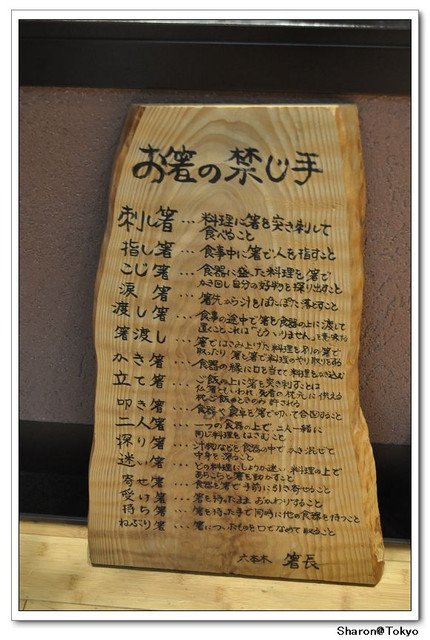 お箸の禁じ手
刺し箸 … 料理に箸を突き刺して
食べること
指し箸 … 食事中に箸で人を指すこと
こじ箸 … 食器に盛った料理を箸で
かき回し自分の好物を探り出すこと
涙箸 … 箸先から汁をぽたぽた落とすこと
渡し箸 … 食事の途中で箸を食器の上に渡して
置くこと これは「もういりません」を意味する
箸渡し … 箸ではさみ上げた料理を別の箸で
取ったり 箸と箸で料理のやり取りをする
かき箸 … 食器の縁に口を当て料理をかき込む
立て箸 … ご飯の上に箸を突き刺すことは
仏箸といわれ 死者の枕元に供える
枕ご飯のときのみ許される
叩き箸 … 食器や食卓を箸で叩いて合図すること
二人箸 … 一つの食器の上で 二人一緒に
同じ料理をはさむこと
探り箸 … 汁物などを食器の中でかき混ぜて
中身を探ること
迷い箸 … どの料理にしようか迷い 料理の上で
あちこちと箸を動かすこと
寄せ箸 … 食器を箸で手前に引き寄せること
受け箸 … 箸を持ったまま おかわりすること
持ち箸 … 箸を持った手で同時に他の食器を持つこと
ねぶり箸 … 箸についたものを口でなめて取ること
六本木 箸長
Sharon@Tokyo